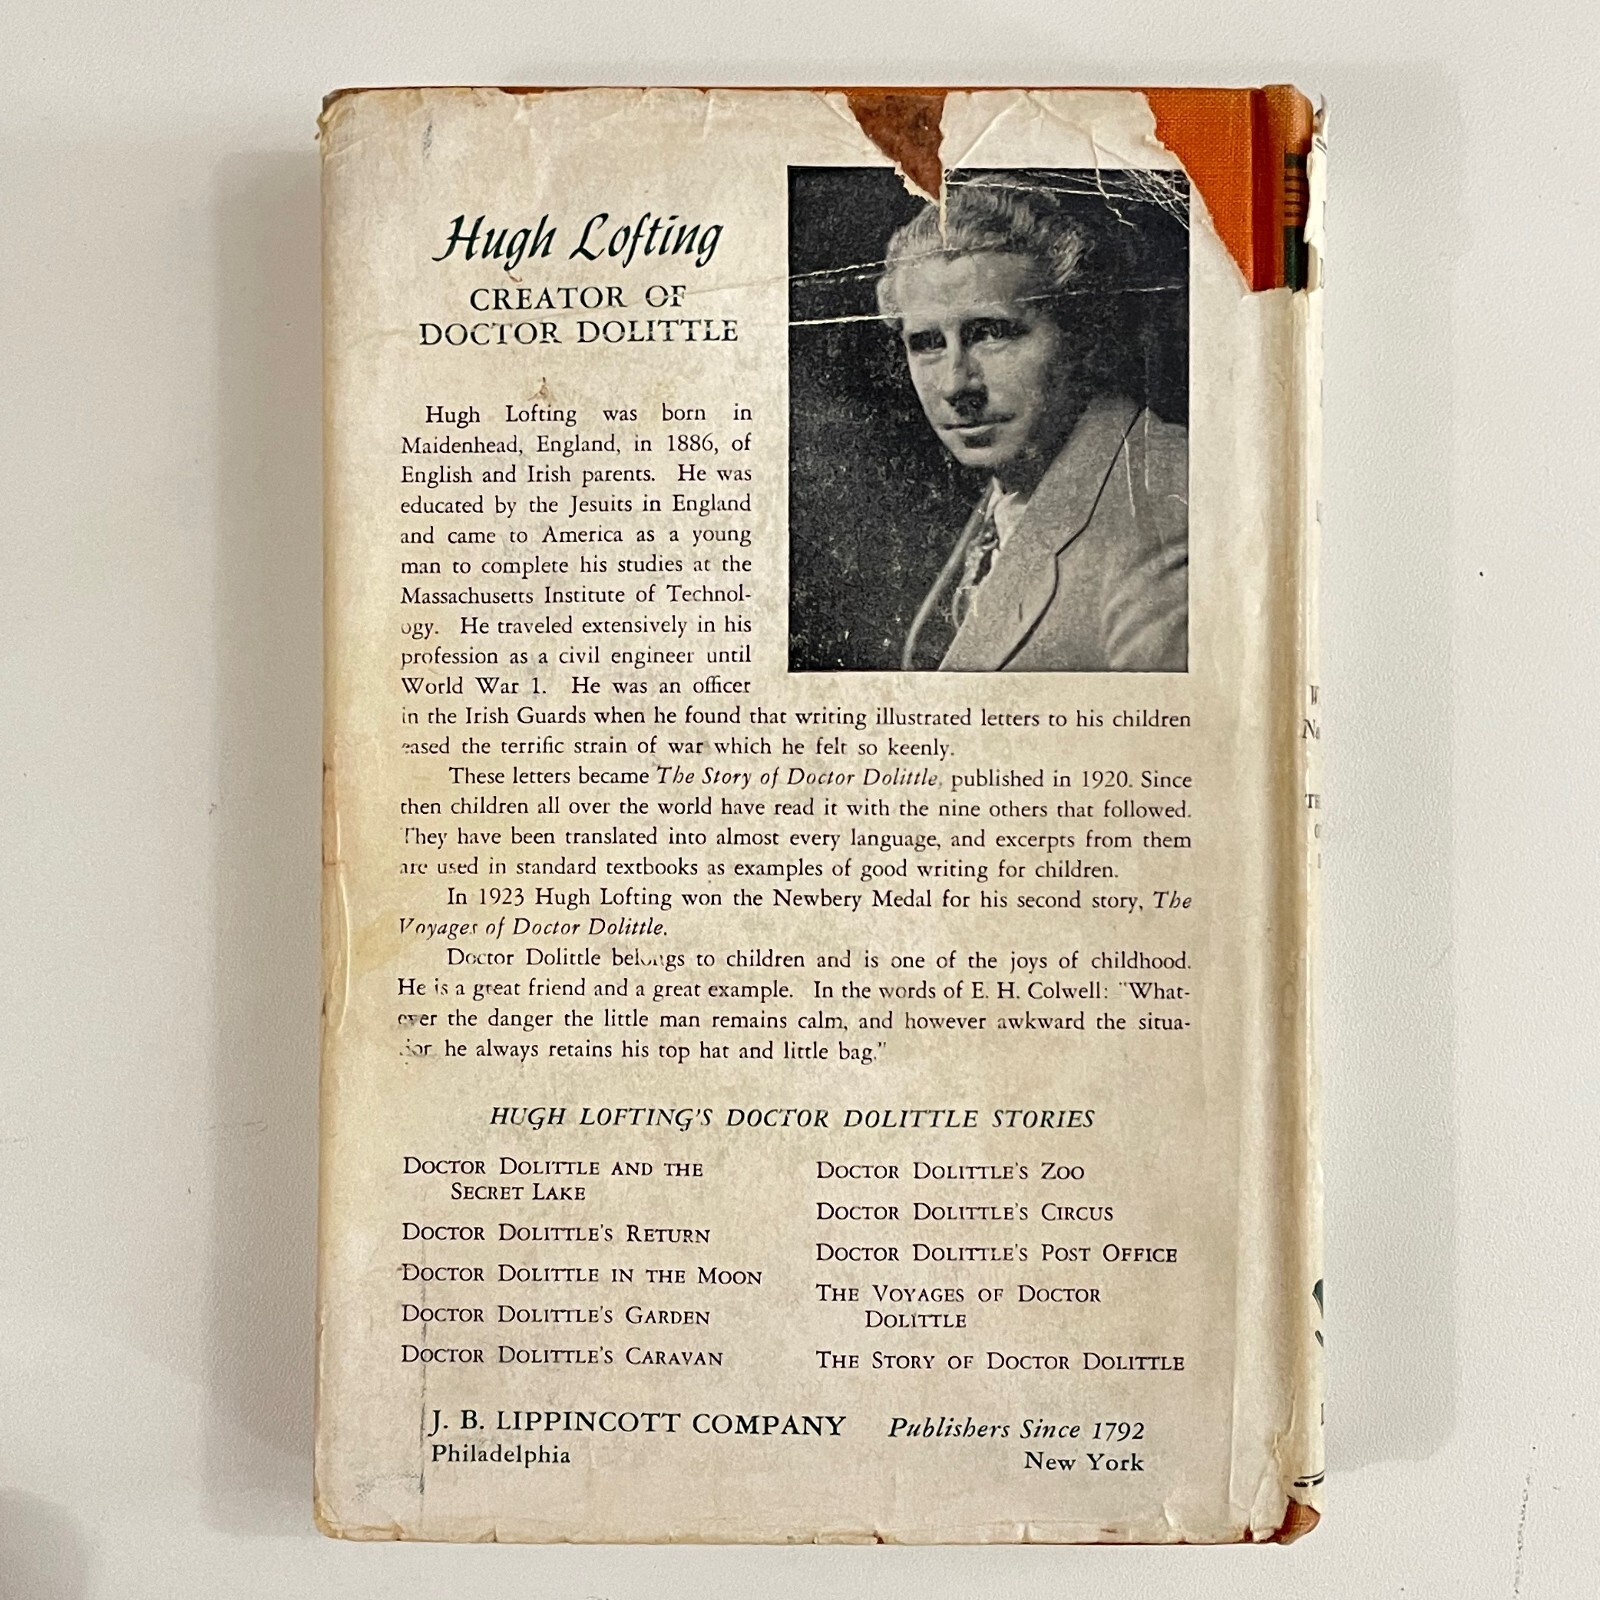 Hugh Lofting
CREATOR OF
DOCTOR DOLITTLE
Hugh Lofting was born in
Maidenhead, England, in 1886, of
English and Irish parents. He was
educated by the Jesuits in England
and came to America as a young
man to complete his studies at the
Massachusetts Institute of Technol-
ogy. He traveled extensively in his
profession as a civil engineer until
World War 1. He was an officer
in the Irish Guards when he found that writing illustrated letters to his children
eased the terrific strain of war which he felt so keenly.
These letters became The Story of Doctor Dolittle, published in 1920. Since
then children all over the world have read it with the nine others that followed.
They have been translated into almost every language, and excerpts from them
are used in standard textbooks as examples of good writing for children.
In 1923 Hugh Lofting won the Newbery Medal for his second story, The
Voyages of Doctor Dolittle.
Doctor Dolittle belongs to children and is one of the joys of childhood.
He is a great friend and a great example. In the words of E. H. Colwell: "What-
ever the danger the little man remains calm, and however awkward the situa-
tion he always retains his top hat and little bag."
HUGH LOFTING'S DOCTOR DOLITTLE STORIES
DOCTOR DOLITTLE AND THE
SECRET LAKE
DOCTOR DOLITTLE'S RETURN
DOCTOR DOLITTLE IN THE MOON
DOCTOR DOLITTLE'S GARDEN
DOCTOR DOLITTLE'S CARAVAN
DOCTOR DOLITTLE'S ZOO
DOCTOR DOLITTLE'S CIRCUS
DOCTOR DOLITTLE'S POST OFFICE
THE VOYAGES OF DOCTOR
DOLITTLE
THE STORY OF DOCTOR DOLITTLE
J. B. LIPPINCOTT COMPANY Publishers Since 1792
Philadelphia New York